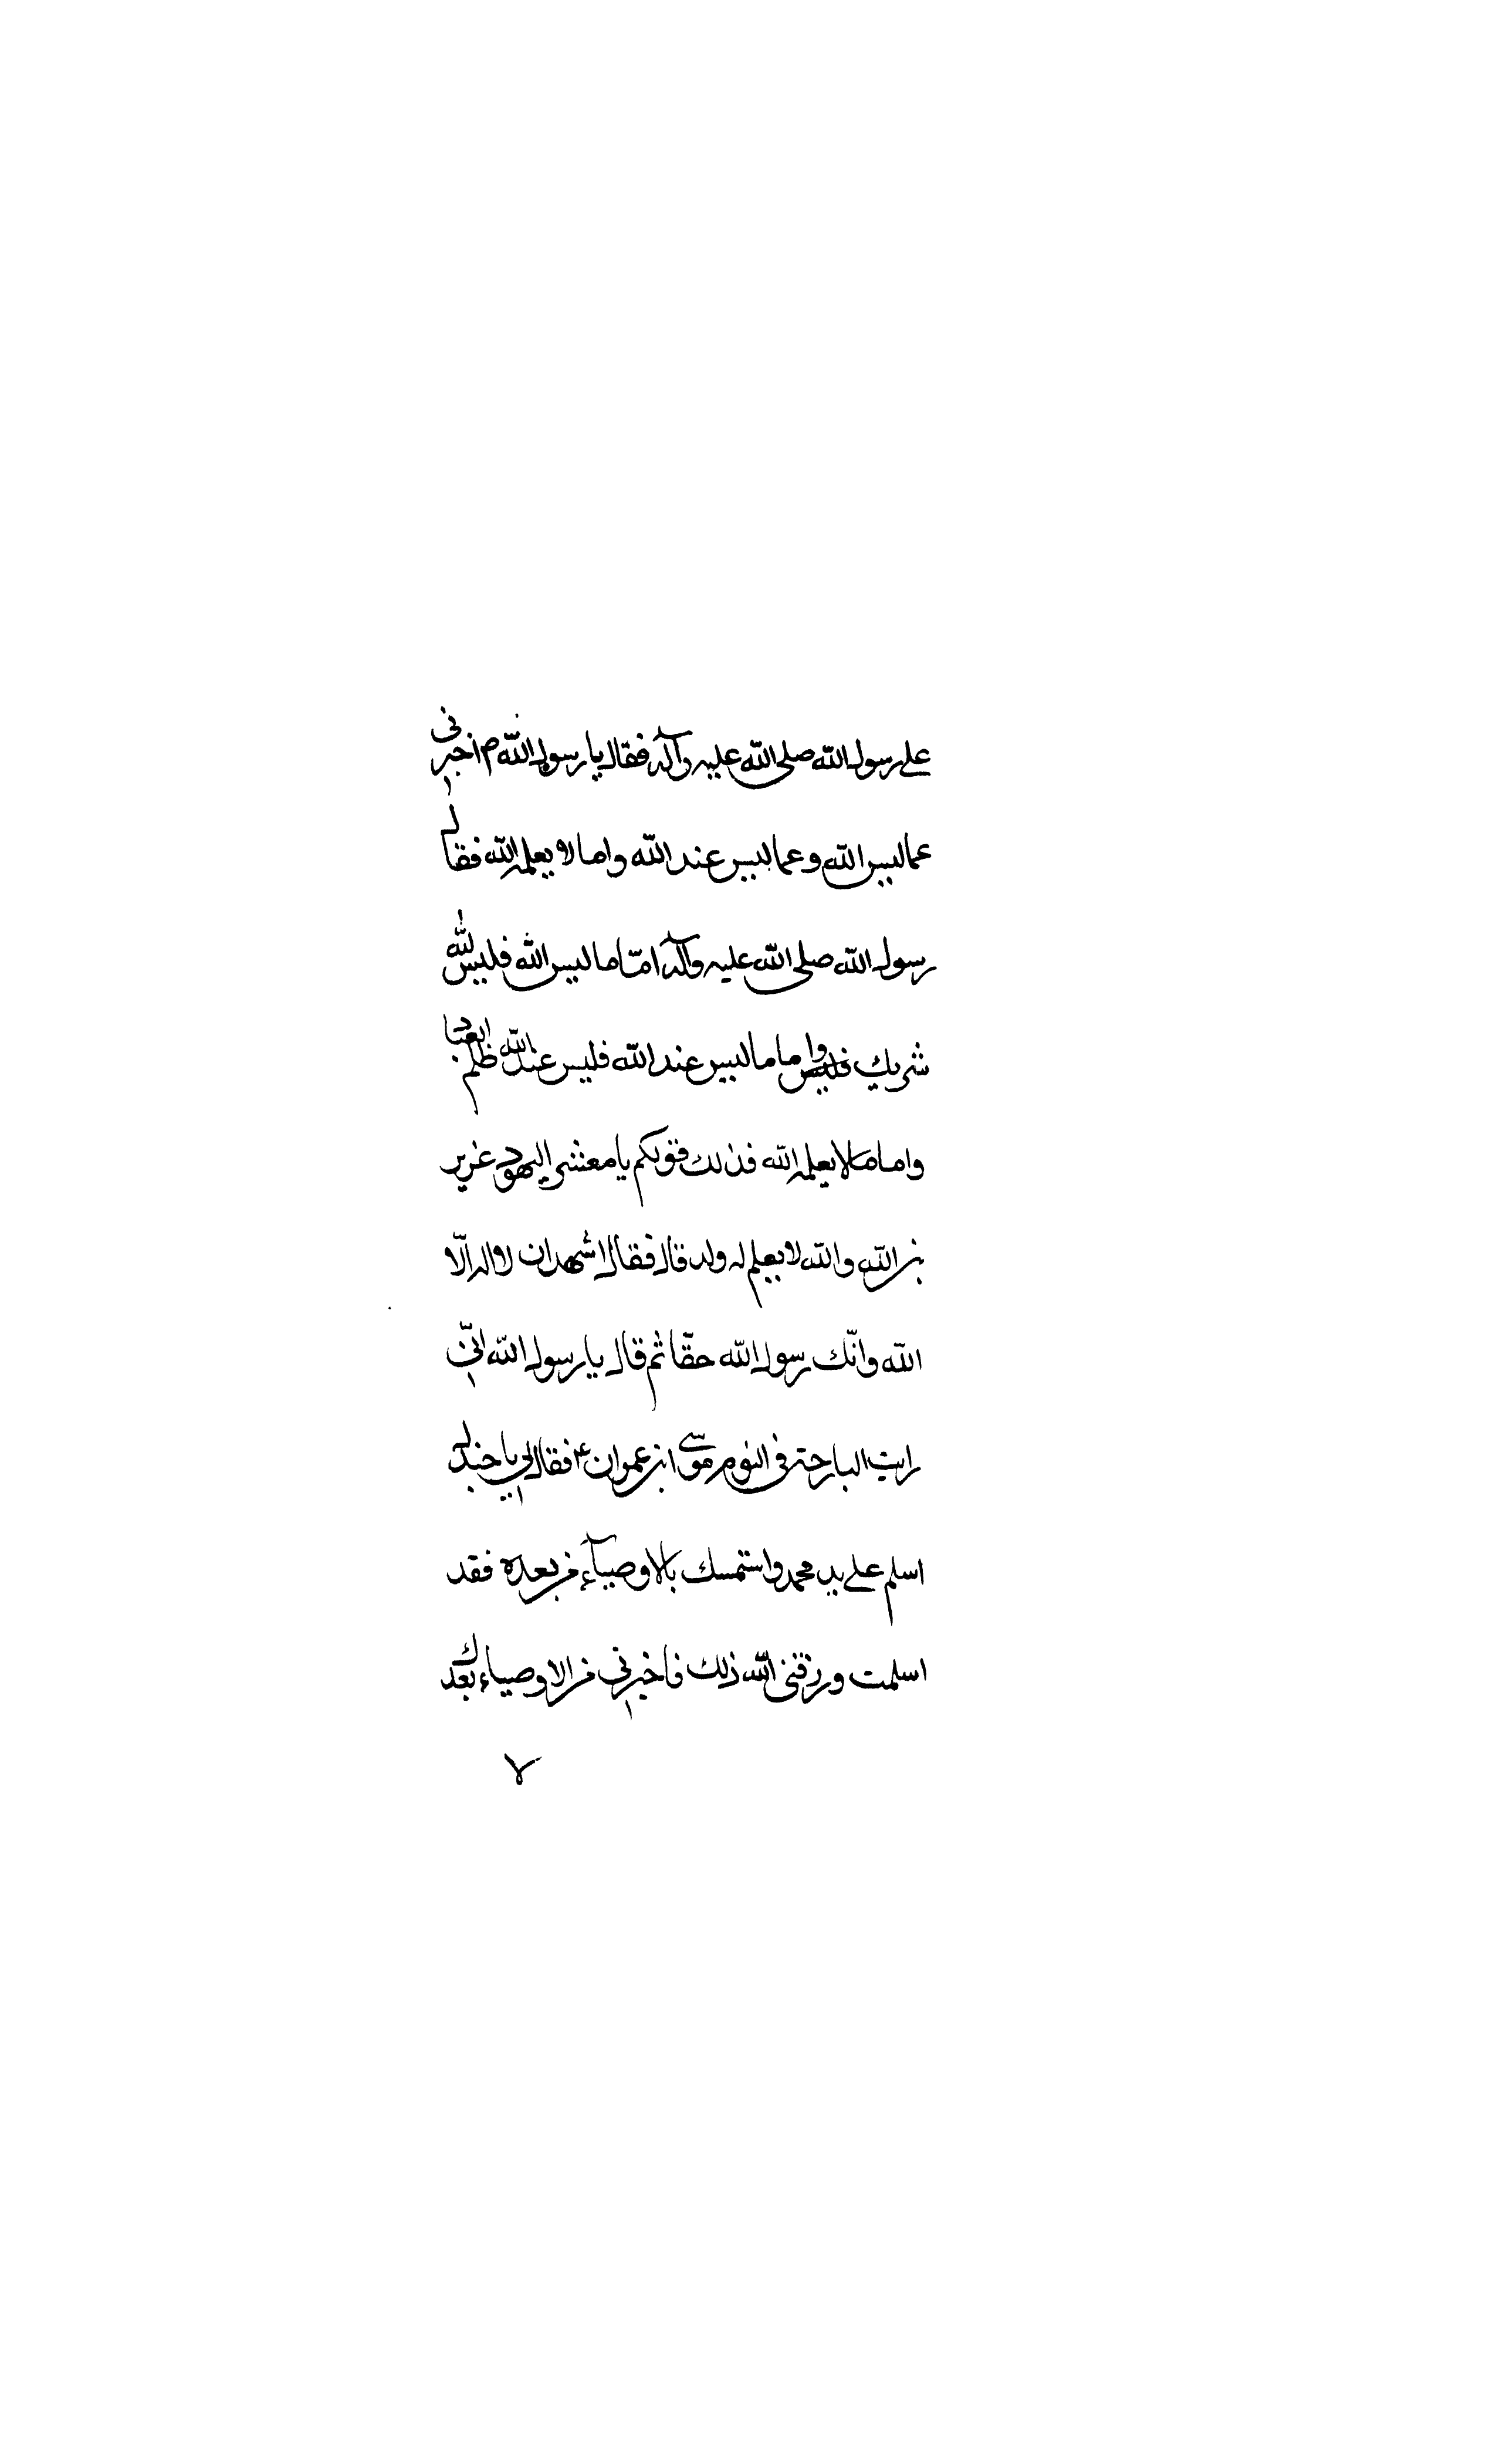 على رسول الله صلى الله عليه وآله فقال يا رسول الله ص اخبرني
عما ليس الله وعما ليس عند الله واما لا يعلمه الله فقال
رسول الله صلى الله عليه وآله امّا ما ليس الله فليس لله
شريك فليس واما ما ليس عند الله فليس عند الله ظلم العباد
واما ما لا يعلمه الله فذلك قولكم يا معشر اليهود عزير
بن الله والله لا يعلم له ولد قال فقال اشهد ان لا اله الّا
الله وانّك رسول الله حقّا ثم قال يا رسول الله انّي
رايت البارحة في النوم موسى ابن عمران ع فقال لي يا جندل
اسلم على يد محمد واستمسك بالاوصيآء من بعده فقد
اسلمت ورزقني الله ذلك فاخبرني من الاوصياء بعدك